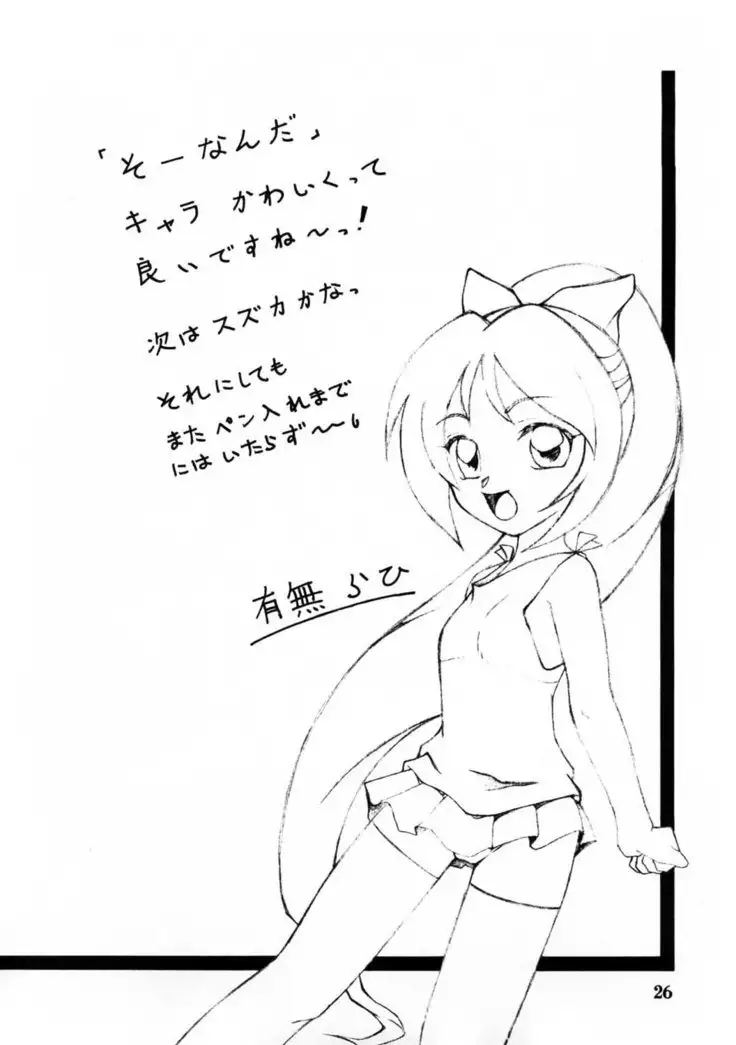 「そーなんだ」
キャラ かわいくって
良いですね〜っ!
次は スズカかなっ
それにしても
また ペン入れまで
には いたらず〜〜。
有無 らひ
26